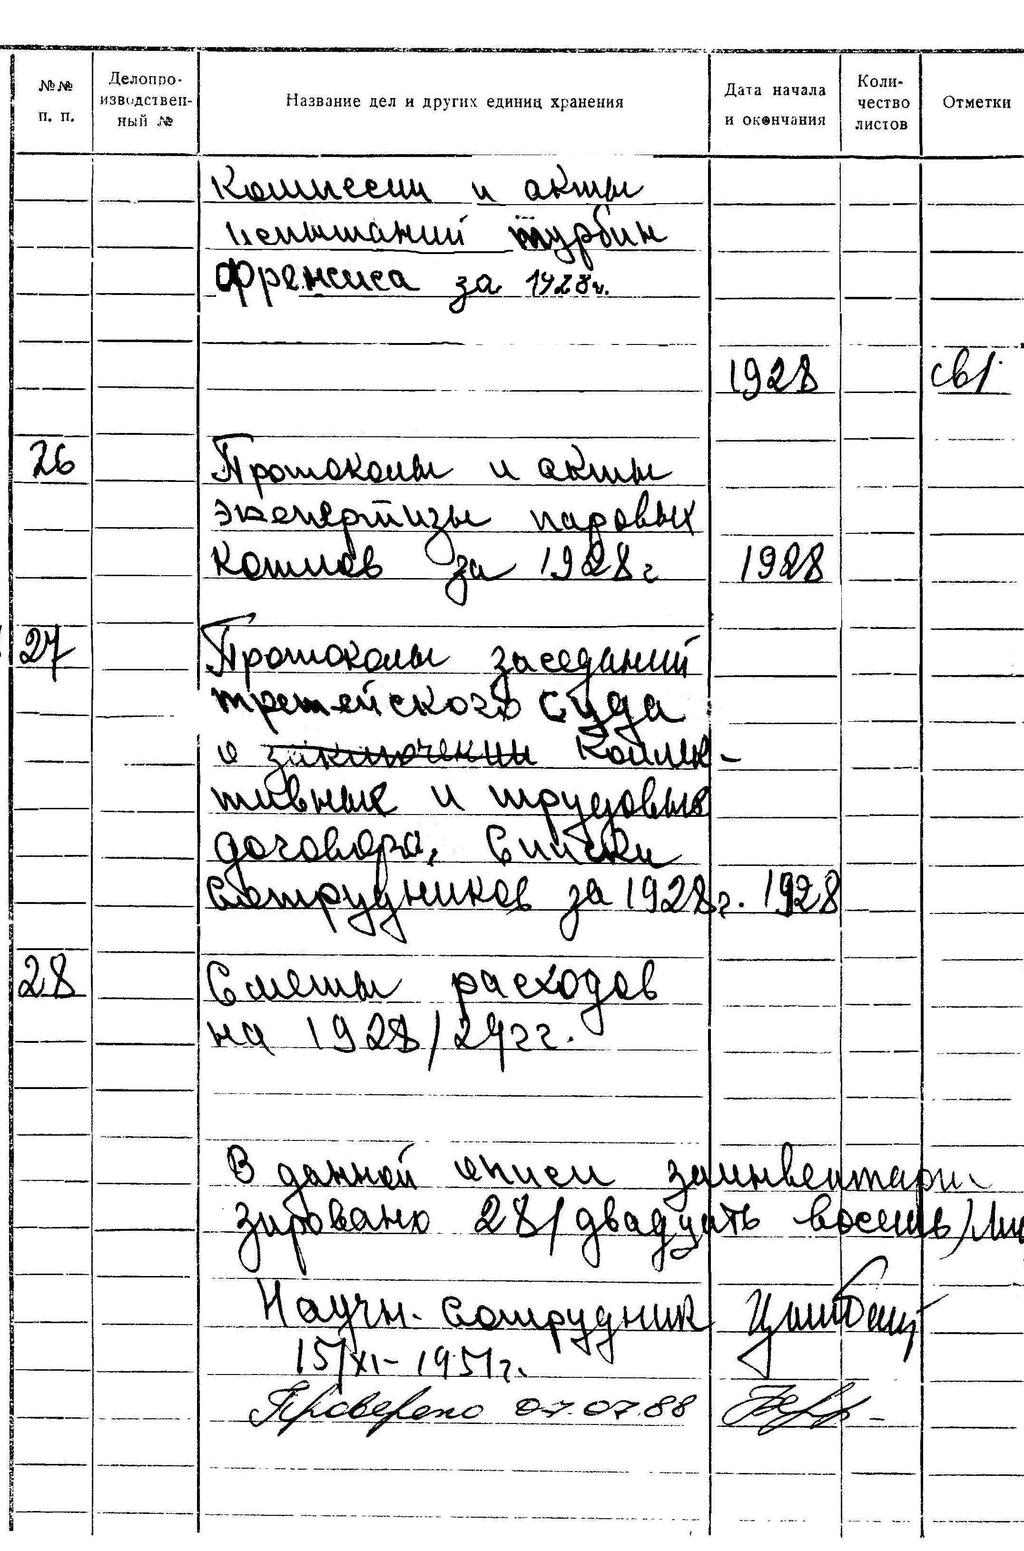 №№ п. п.
Делопро-
изводствен-
ный №
Название дел и других единиц хранения
Дата начала
и окончания
Коли-
чество
листов
Отметки
комиссии и акты
испытаний турбин
Френсиса за 1928г.
1928
26 Протоколы и акты
экспертизы паровых
котлов за 1928г 1928
27 Протоколы заседаний
третейского суда
о заключении коллек-
тивных и трудовых
договора, списки
сотрудников за 1928г. 1928
28 Сметы расходов
на 1928/29гг.
В данной описи заинвентари-
зировано 28/двадцать восемь/
Научн. сотрудник
15/XI-1951г.
Проверено 07.07.88